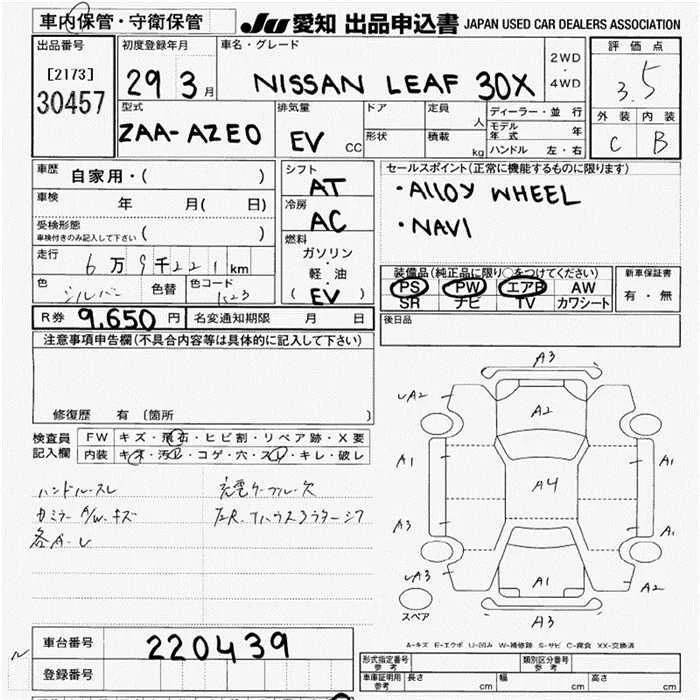 車内保管・守衛保管
JU 愛知 出品申込書 JAPAN USED CAR DEALERS ASSOCIATION
出品番号
[2173]
30457
初度登録年月
29 3月
車名・グレード
NISSAN LEAF 30X
2WD
・
4WD
評価点
3.5
外装 内装
C B
型式
ZAA-AZE0
排気量
EV CC
ドア
形状
定員
人
積載
kg
ディーラー・並行
モデル年式 年
ハンドル 左・右
車歴
自家用・( )
車検 年 月( 日)
受検形態
車検付きのみ記入して下さい ( )
走行
6万9千221km
色
シルバー
色替
色コード
シフト
AT
冷房
AC
燃料
ガソリン
・
軽・油
(EV)
セールスポイント(正常に機能するものに限ります)
・Alloy WHEEL
・NAVI
装備品(純正品に限り○をつけてください)
PS PW エアB AW
SR ナビ TV カワシート
新車保証書
有・無
R券 9,650円
名変通知期限 月 日
後日品
注意事項申告欄(不具合内容等は具体的に記入して下さい)
修復歴 有〔箇所 〕
検査員
記入欄
FW キズ・飛石・ヒビ割・リペア跡・X要
内装 キズ・汚レ・コゲ・穴・スレ・キレ・破レ
ハンドルスレ
充電ケーブル欠
A3
A2
A4
A1
A3
A2
A1
A3
A3
A1
A1
A2
スペア
A-キズ E-エクボ U-凹み W-補修跡 S-サビ C-腐食 XX-交換済
車台番号
220439
登録番号
形式指定番号
参考
類別区分番号
参考
車庫証明用
参考
長さ cm 幅 cm 高さ cm